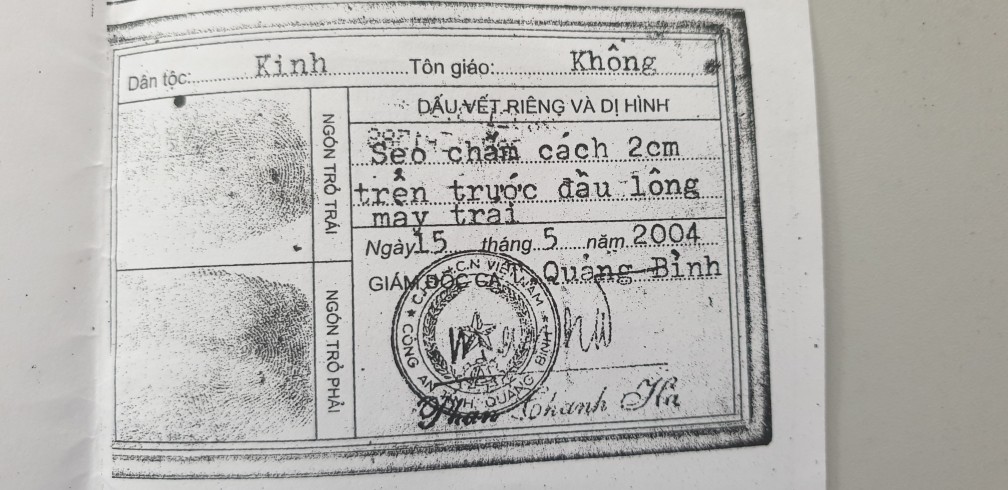 Dân tộc: Kinh Tôn giáo: Không
NGÓN TRỎ TRÁI
NGÓN TRỎ PHẢI
DẤU VẾT RIÊNG VÀ DỊ HÌNH
Sẹo chấm cách 2cm
trên trước đầu lông
mày trái
Ngày 15 tháng 5 năm 2004
GIÁM ĐỐC CA Quảng Bình
C.H.X.H.C.N VIỆT NAM
CÔNG AN TỈNH QUẢNG BÌNH
Phan Thanh Hạ